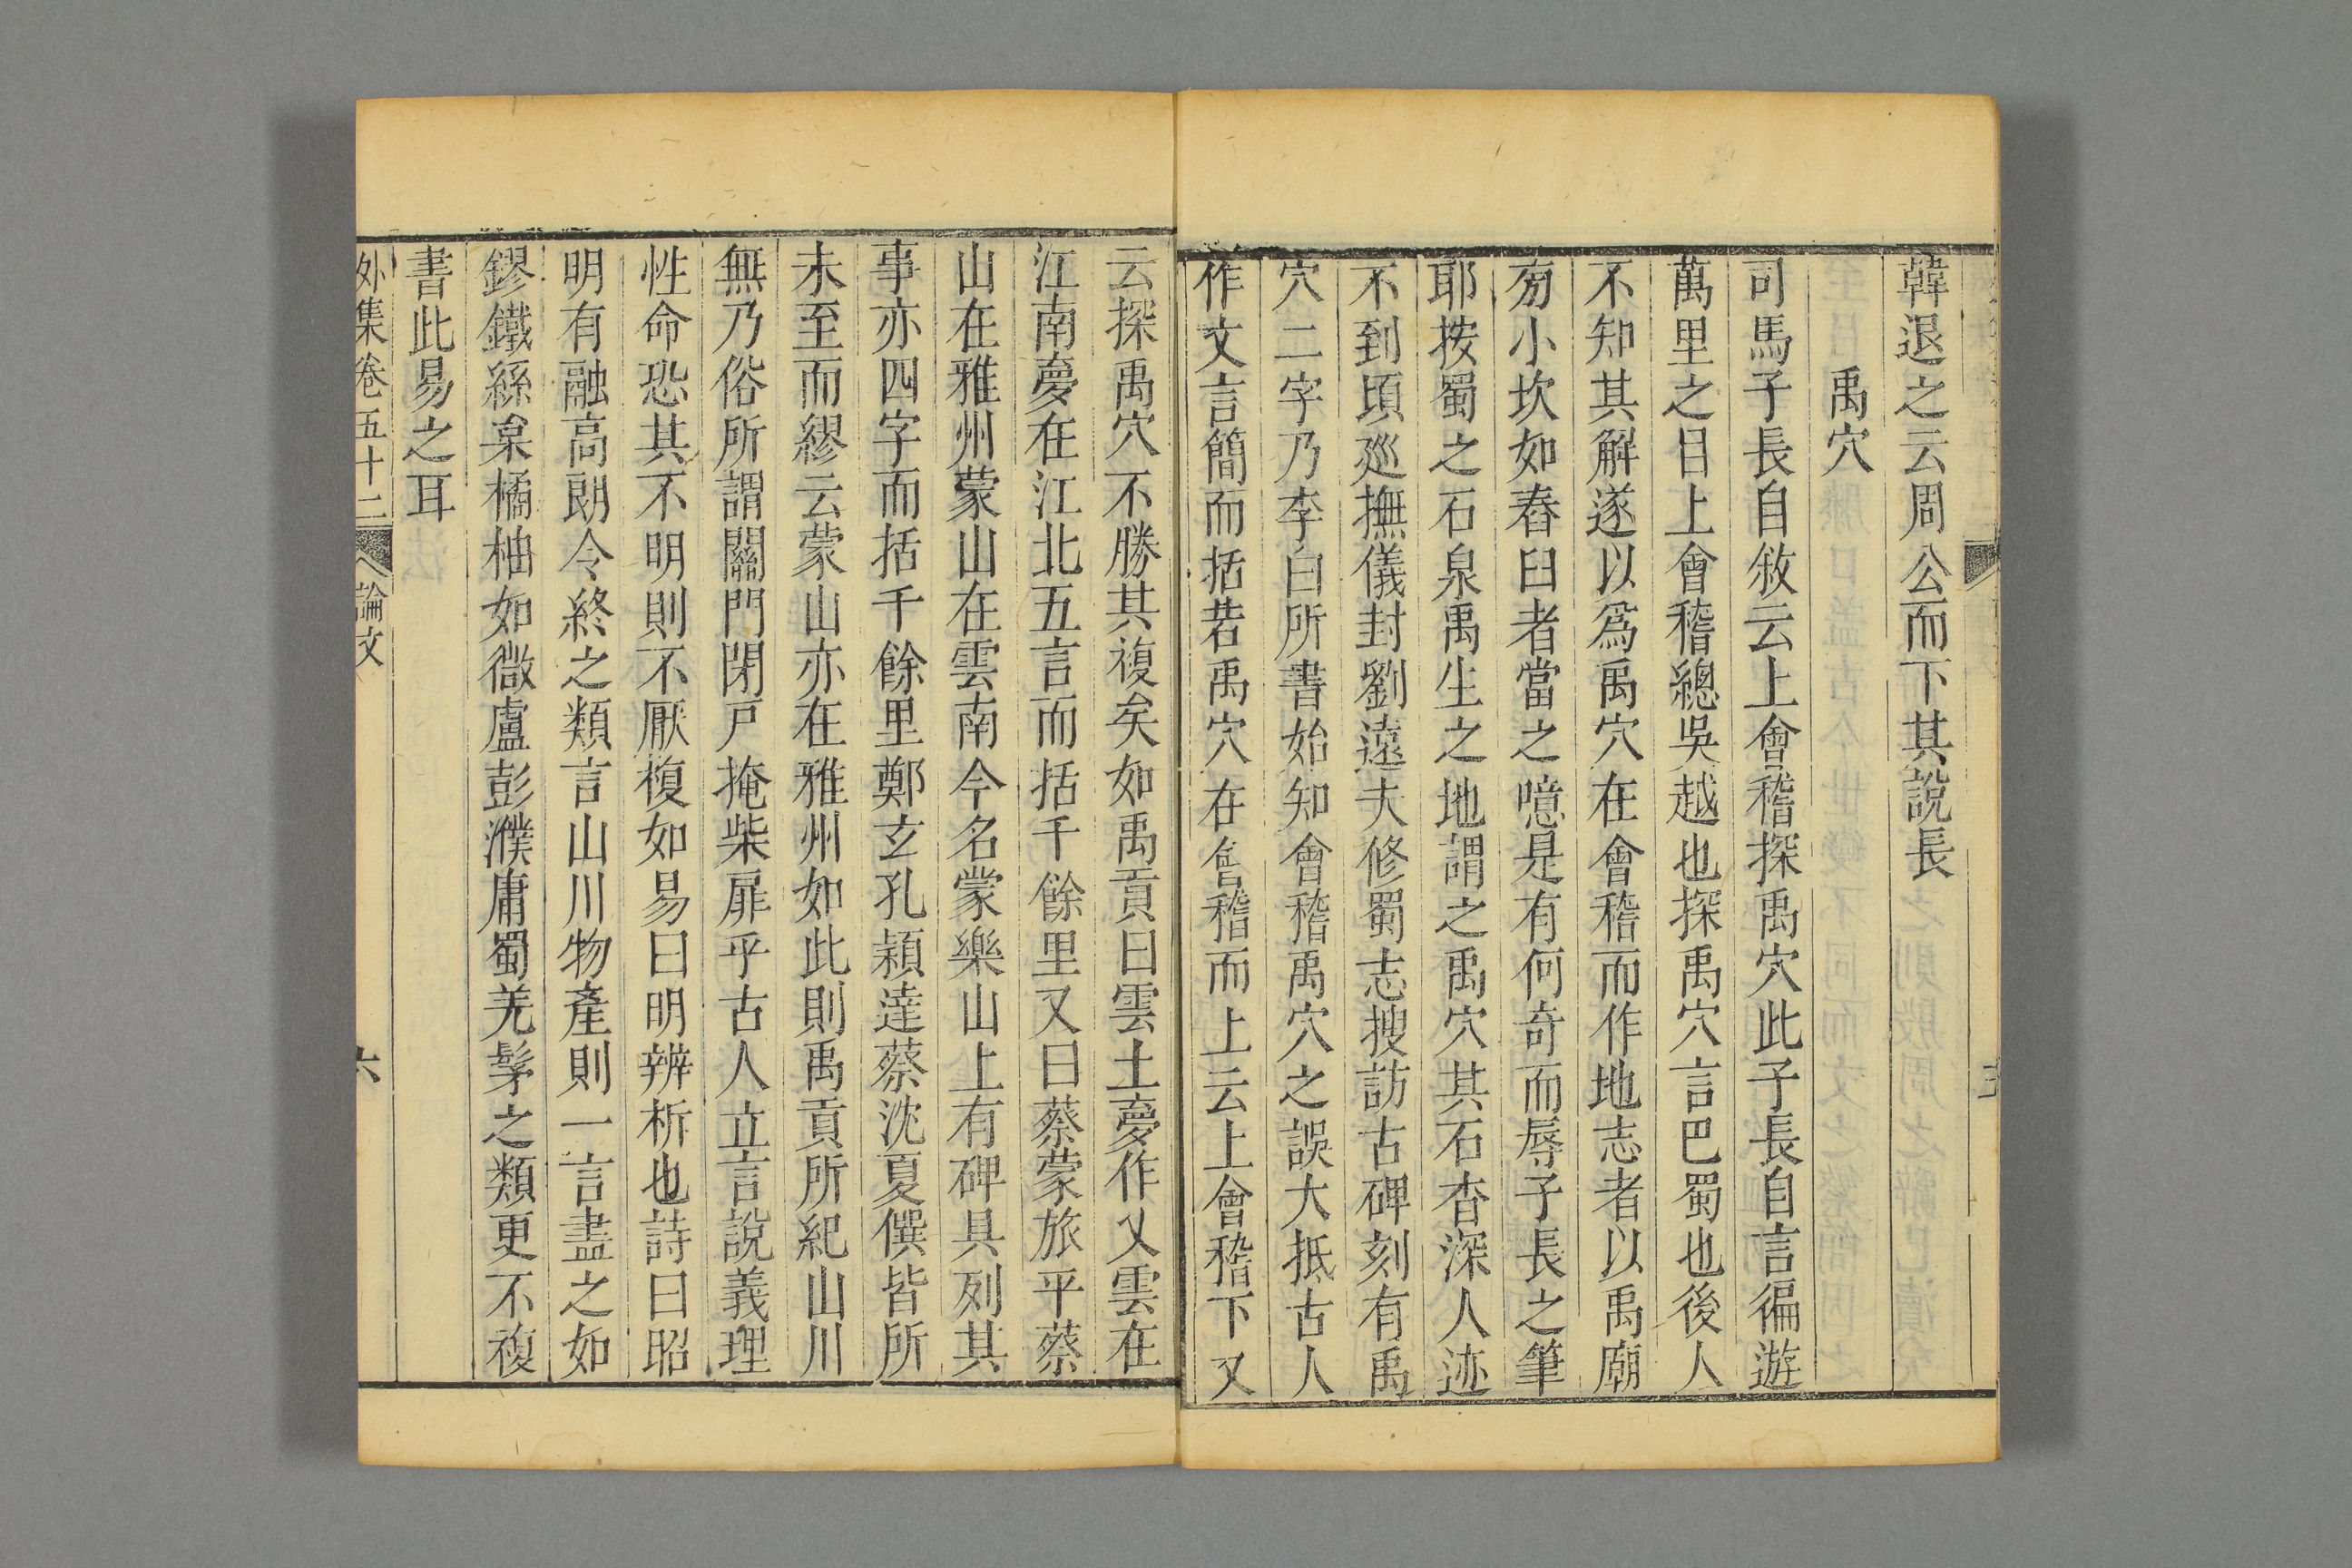 韓退之云周公而下其說長
禹穴
司馬子長自敘云上會稽探禹穴此子長自言徧遊
萬里之日上會稽總吳越也探禹穴言巴蜀也後人
不知其解遂以爲禹穴在會稽而作地志者以禹廟
旁小坎如舂臼者當之噫是有何奇而辱子長之筆
耶按蜀之石泉禹生之地謂之禹穴其石杳深人迹
不到頃廵撫儀封劉遠夫修蜀志搜訪古碑刻有禹
穴二字乃李白所書始知會稽禹穴之誤大抵古人
作文言簡而括若禹穴在會稽而上云上會稽下又
云探禹穴不勝其複矣如禹貢曰雲土夢作乂雲在
江南夢在江北五言而括千餘里又曰蔡蒙旅平蔡
山在雅州蒙山在雲南今名蒙樂山上有碑具列其
事亦四字而括千餘里鄭玄孔穎達蔡沈夏僎皆所
未至而繆云蒙山亦在雅州如此則禹貢所紀山川
無乃俗所謂關門閉戸掩柴扉乎古人立言說義理
性命恐其不明則不厭複如易曰明辨析也詩曰昭
明有融高朗令終之類言山川物產則一言盡之如
鏐鐵絲枲橘柚如微盧彭濮庸蜀羌髳之類更不複
書此易之耳
外集卷五十二 論文 六